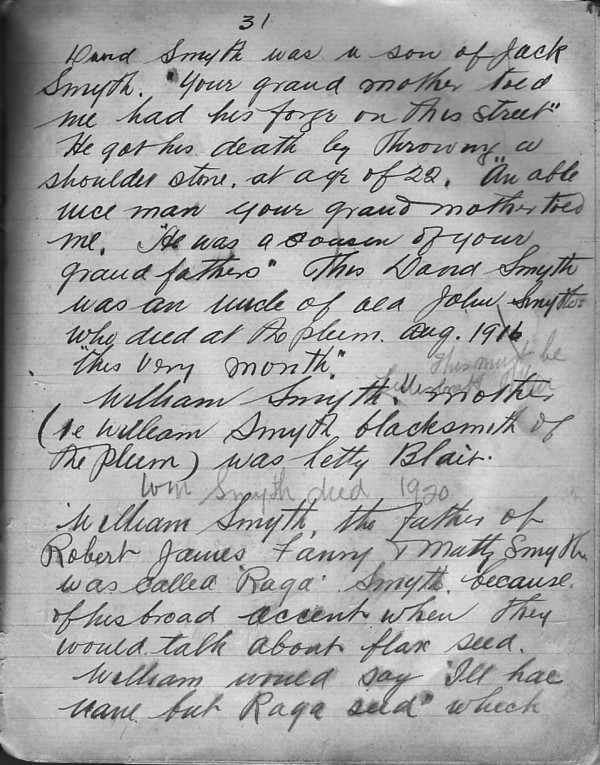 31
David Smyth was a son of Jack
Smyth. "Your grand mother told
me had his forge on this street"
He got his death by throwing a
shoulder stone. at age of 22. "An able
nice man your grand mother told
me. "He was a cousin of your
grand fathers" This David Smyth
was an uncle of old John Smyths
who died at the plum. Aug. 1916
"this very month."
This must be
William Smyth." mother
(ie William Smyth blacksmith of
the plum) was Letty Blair.
Wm Smyth died 1920
William Smyth, the father of
Robert James Fanny & Matty Smyth
was called 'Raga' Smyth. because
of his broad accent when they
would talk about flax seed.
William would say 'Ill hae
nane but Raga seed" which